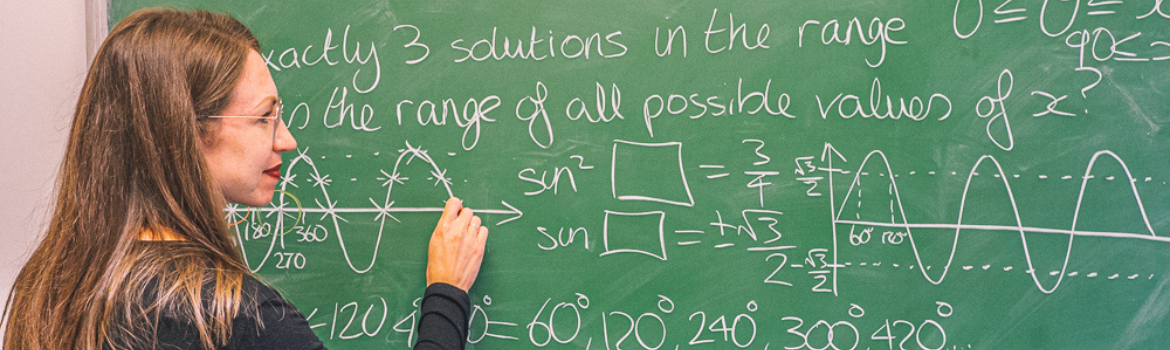 exactly 3 solutions in the range 0 ≤ θ ≤
90 ≤
the range of all possible values of x?
sin² □ = 3/4
sin □ = ±√3/2
√3/2
-√3/2
60° 120°
180 360
270
120 = 60°, 120°, 240°, 300°, 420°...